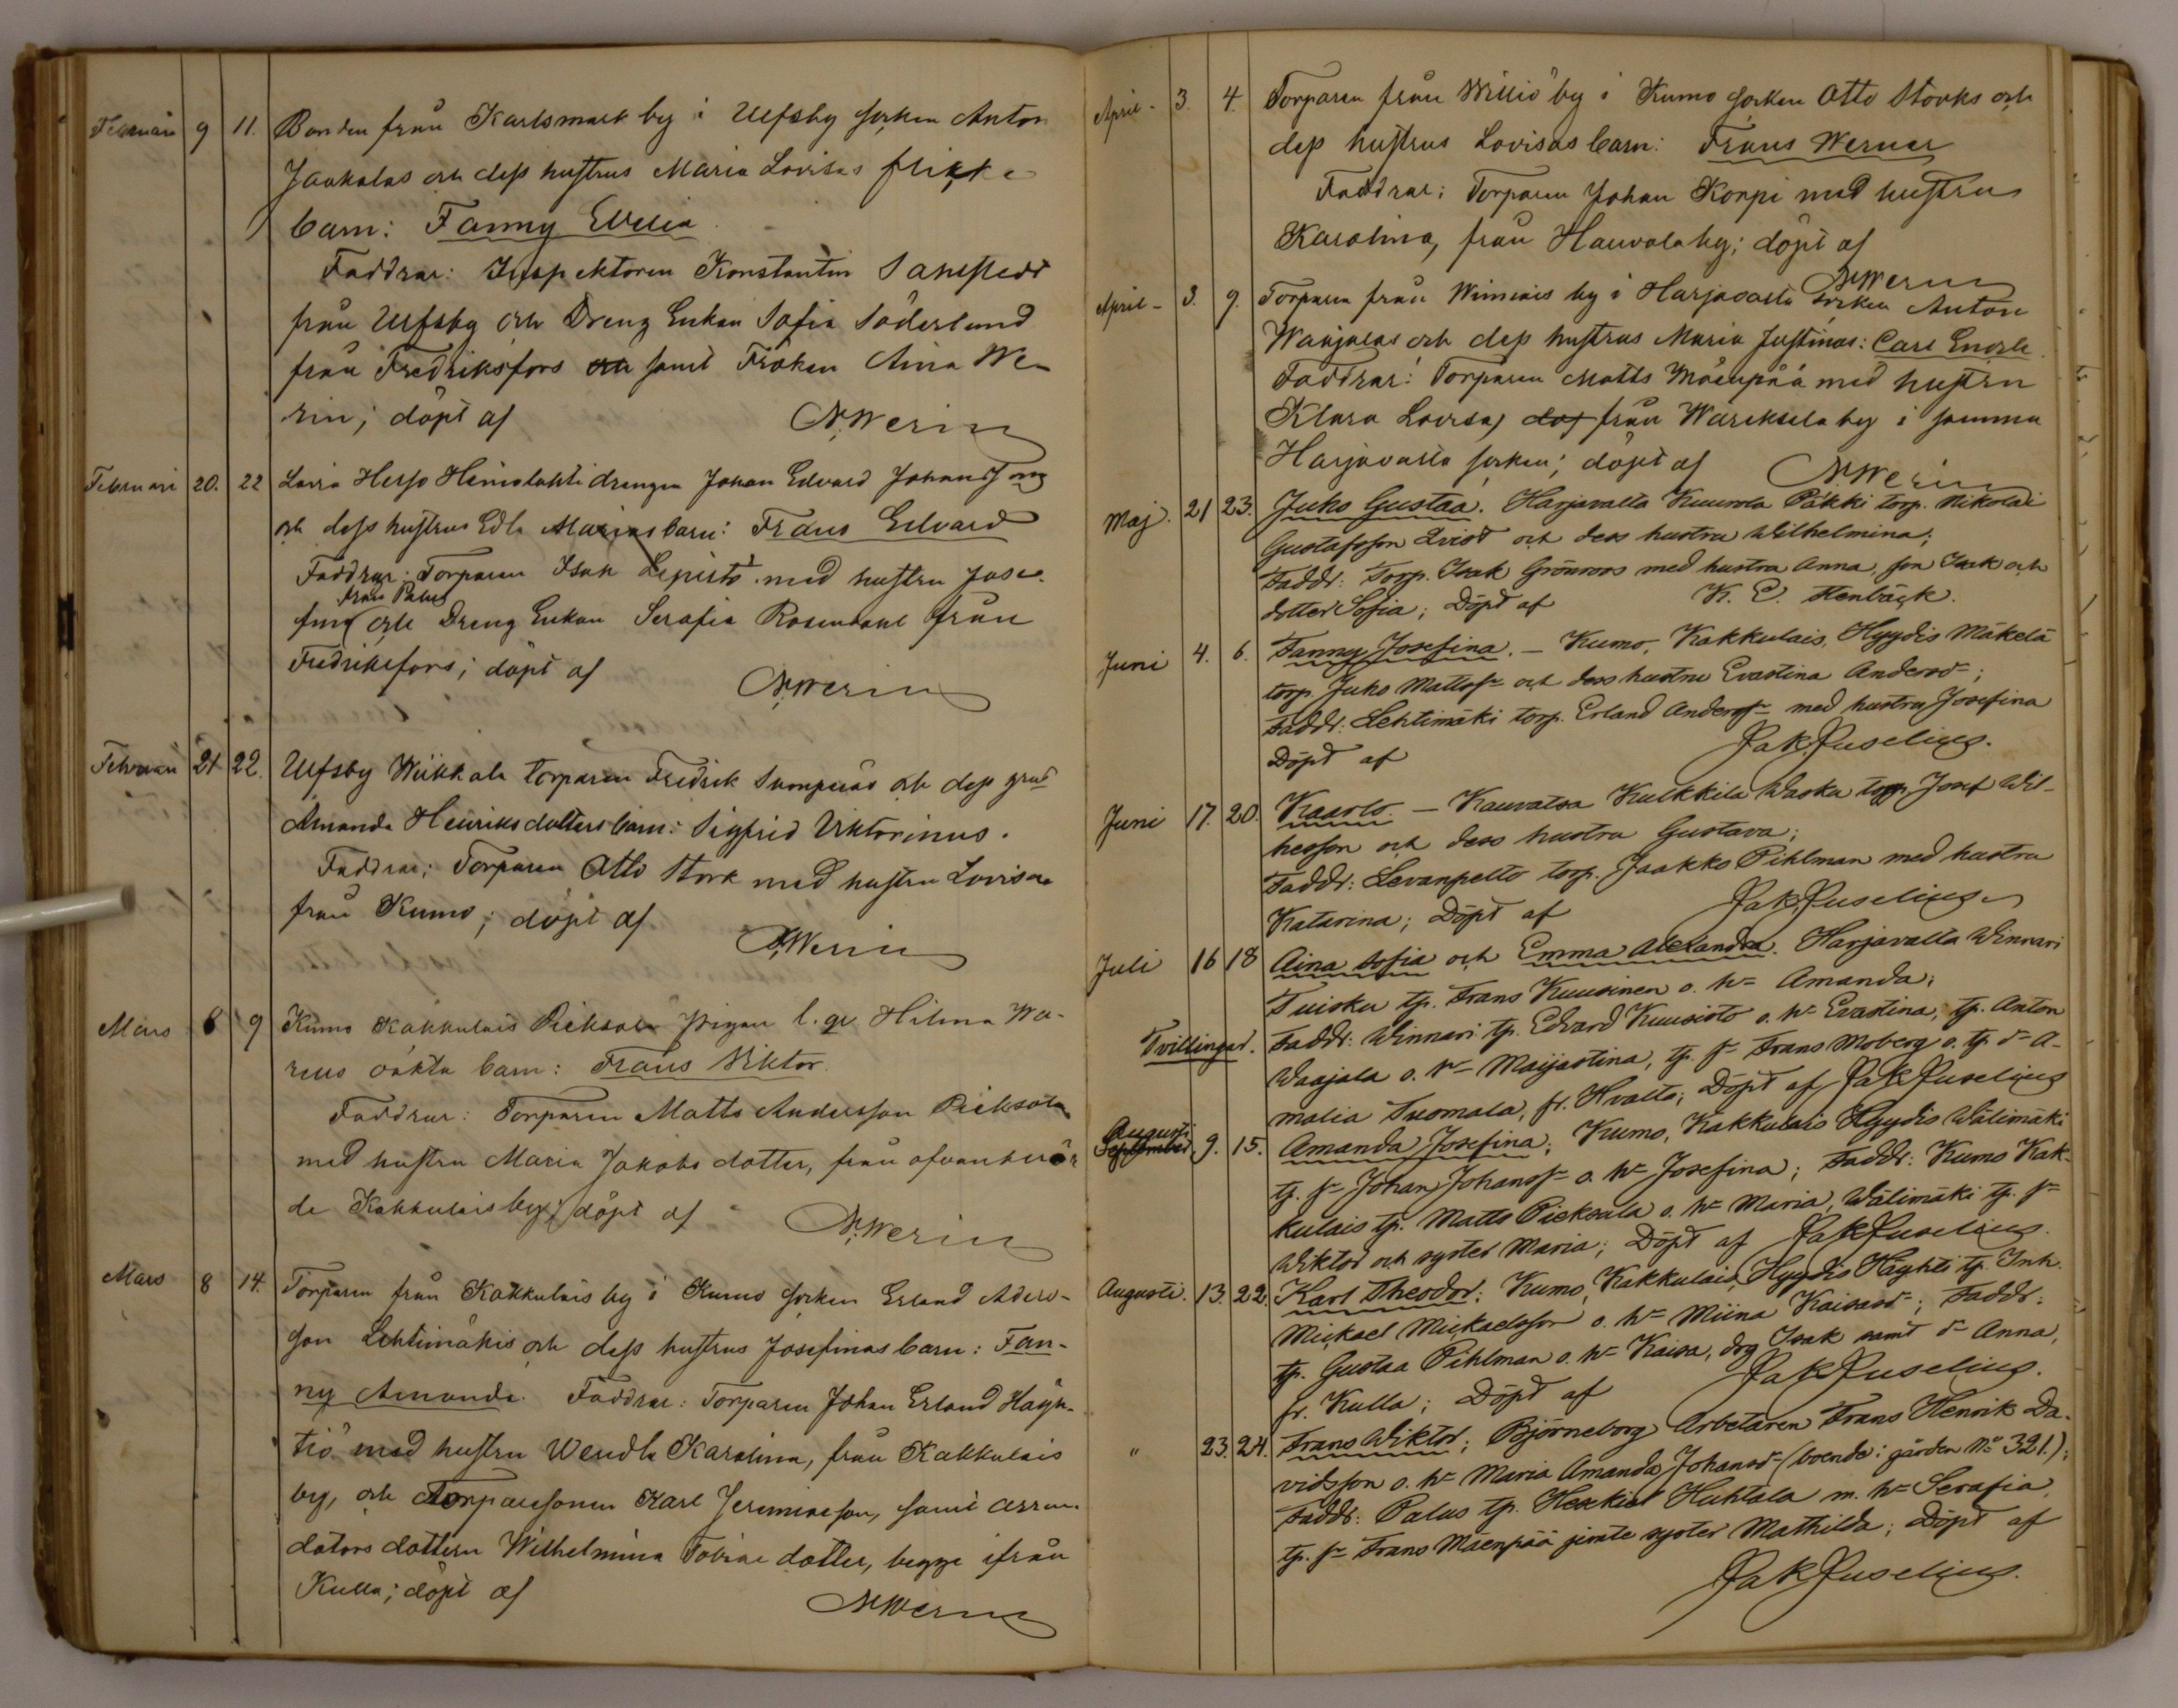 Februari 9 11. Bonden från Karlsmark by i Ulfsby socken Anton
Jaakolas och dess hustrus Maria Lovisas flicke
barn: Fanny Evelia.
Faddrar: Inspektoren Konstantin
från Ulfsby och Dreng Enkan Sofia Söderlund
från Fredriksfors och samt Fröken Aina We-
rin; döpt af N. Werin
Februari 20. 22 Heinolahti drengen Johan Edvard
och dess hustrus Edla Marias barn: Frans Edvard
Faddrar: Torparen Isak Lepistö med hustru Jose-
från Palus
fina och Dreng Enkan Serafia Rosendahl från
Fredriksfors; döpt af N. Werin
Februari 21 22. Ulfsby Wiikkala torparen Fredrik och dess
Amanda Henriksdotters barn: Sigfrid Viktorinus.
Faddrar: Torparen Otto Stork med hustru Lovisa
från Kumo; döpt af N. Werin
Mars 6 9 Kumo Kakkulais Pieksala pigan l. qv. Hilma Wa-
rens oäkta barn: Frans Viktor.
Faddrar: Torparen Matts Andersson Pieksala
med hustru Maria Jakobs dotter, från ofvanberör
de Kakkulais by; döpt af N. Werin
Mars 8 14. Torparen från Kakkulais by i Kumo socken Erland Anders-
son Lehtimäkis och dess hustrus Josefinas barn: Fan-
ny Amanda. Faddrar: Torparen Johan Erland Häyh-
tiö med hustru Wendla Karolina, från Kakkulais
by, och Torparesonen Karl Jeremiasson, samt arren-
dators dottern Wilhelmina Tobias dotter, begge ifrån
Kulla; döpt af N. Werin
April - 3. 4. Torparen från Williö by i Kumo socken Otto Storks och
dess hustrus Lovisas barn: Frans Werner
Faddrar: Torparen Johan Korpi med hustru
Karolina, från Hauvola by; döpt af
N. Werin
April - 3. 9. Torparen från by i Harjavalta socken Anton
Waajalas och dess hustrus Maria Justinas: Carl
Faddrar: Torparen Matts Mäenpää med hustru
Klara Lovisa, från Wareksela by i samma
Harjavalta socken; döpt af N. Werin
Maj. 21 23. Juho Gustaa. Harjavalta Kuurola Päkki torp. Nikolai
Gustafsson Qvist och dess hustru Wilhelmina;
Faddr: Torp. Isak Grönroos med hustru Anna, son Isak och
dotter Sofia; Döpt af K. E. Stenbäck.
Juni 4. 6. Fanny Josefina. - Kumo, Kakkulais, Hyydis Mäkelä
torp. Juho Mattss= och dess hustru Evastina Andersd=;
Faddr: Lehtimäki torp. Erland Anderss= med hustru Josefina
Döpt af Jak. Juselius.
Juni 17. 20. Kaarlo. - Kauvatsa Kulkkila Waska torp. Josef Wil-
hesson och dess hustru Gustava;
Faddr: Levanpelto torp. Jaakko Pihlman med hustru
Katarina; Döpt af Jak. Juselius
Juli 16 18 Aina Sofia och Emma Alexandra. Harjavalta Winnari
Tuisku tp. Frans Kuusinen o. h= Amanda;
Tvillingar. Faddr: Winnari tp. Edvard Kuusisto o. h= Evastina, tp. Anton
Waajala o. h= Maijastina, tp. s= Frans Moberg o. tp. d= A-
malia Tuomala, fr. Hvalto; Döpt af Jak Juselius
Augusti
September 9. 15. Amanda Josefina; Kumo, Kakkulais Hyydis Wälimäki
tp. s= Johan Johanss= o. h= Josefina; Faddr: Kumo Kak-
kulais tp. Matts Pieksala o. h= Maria, Wälimäki tp. s=
Wiktor och syster Maria; Döpt af Jak Juselius.
Augusti. 13. 22. Karl Theodor: Kumo, Kakkulais, Hyydis Häyhti tp. Inh.
Mickael Mickaelsson o. h= Miina Kaisasd=; Faddr:
tp. Gustaa Pihlman o. h= Kaisa, drg Isak samt d= Anna,
fr. Kulla; Döpt af Jak Juselius.
" 23. 24. Frans Wiktor; Björneborg Arbetaren Frans Henrik Da-
vidsson o. h= Maria Amanda Johansd= (boende i gården No 321.);
Faddr: Palus tp. Heskiel Huhtala m. h= Serafia,
tp. s= Frans Mäenpää jemte syster Mathilda; Döpt af
Jak Juselius.